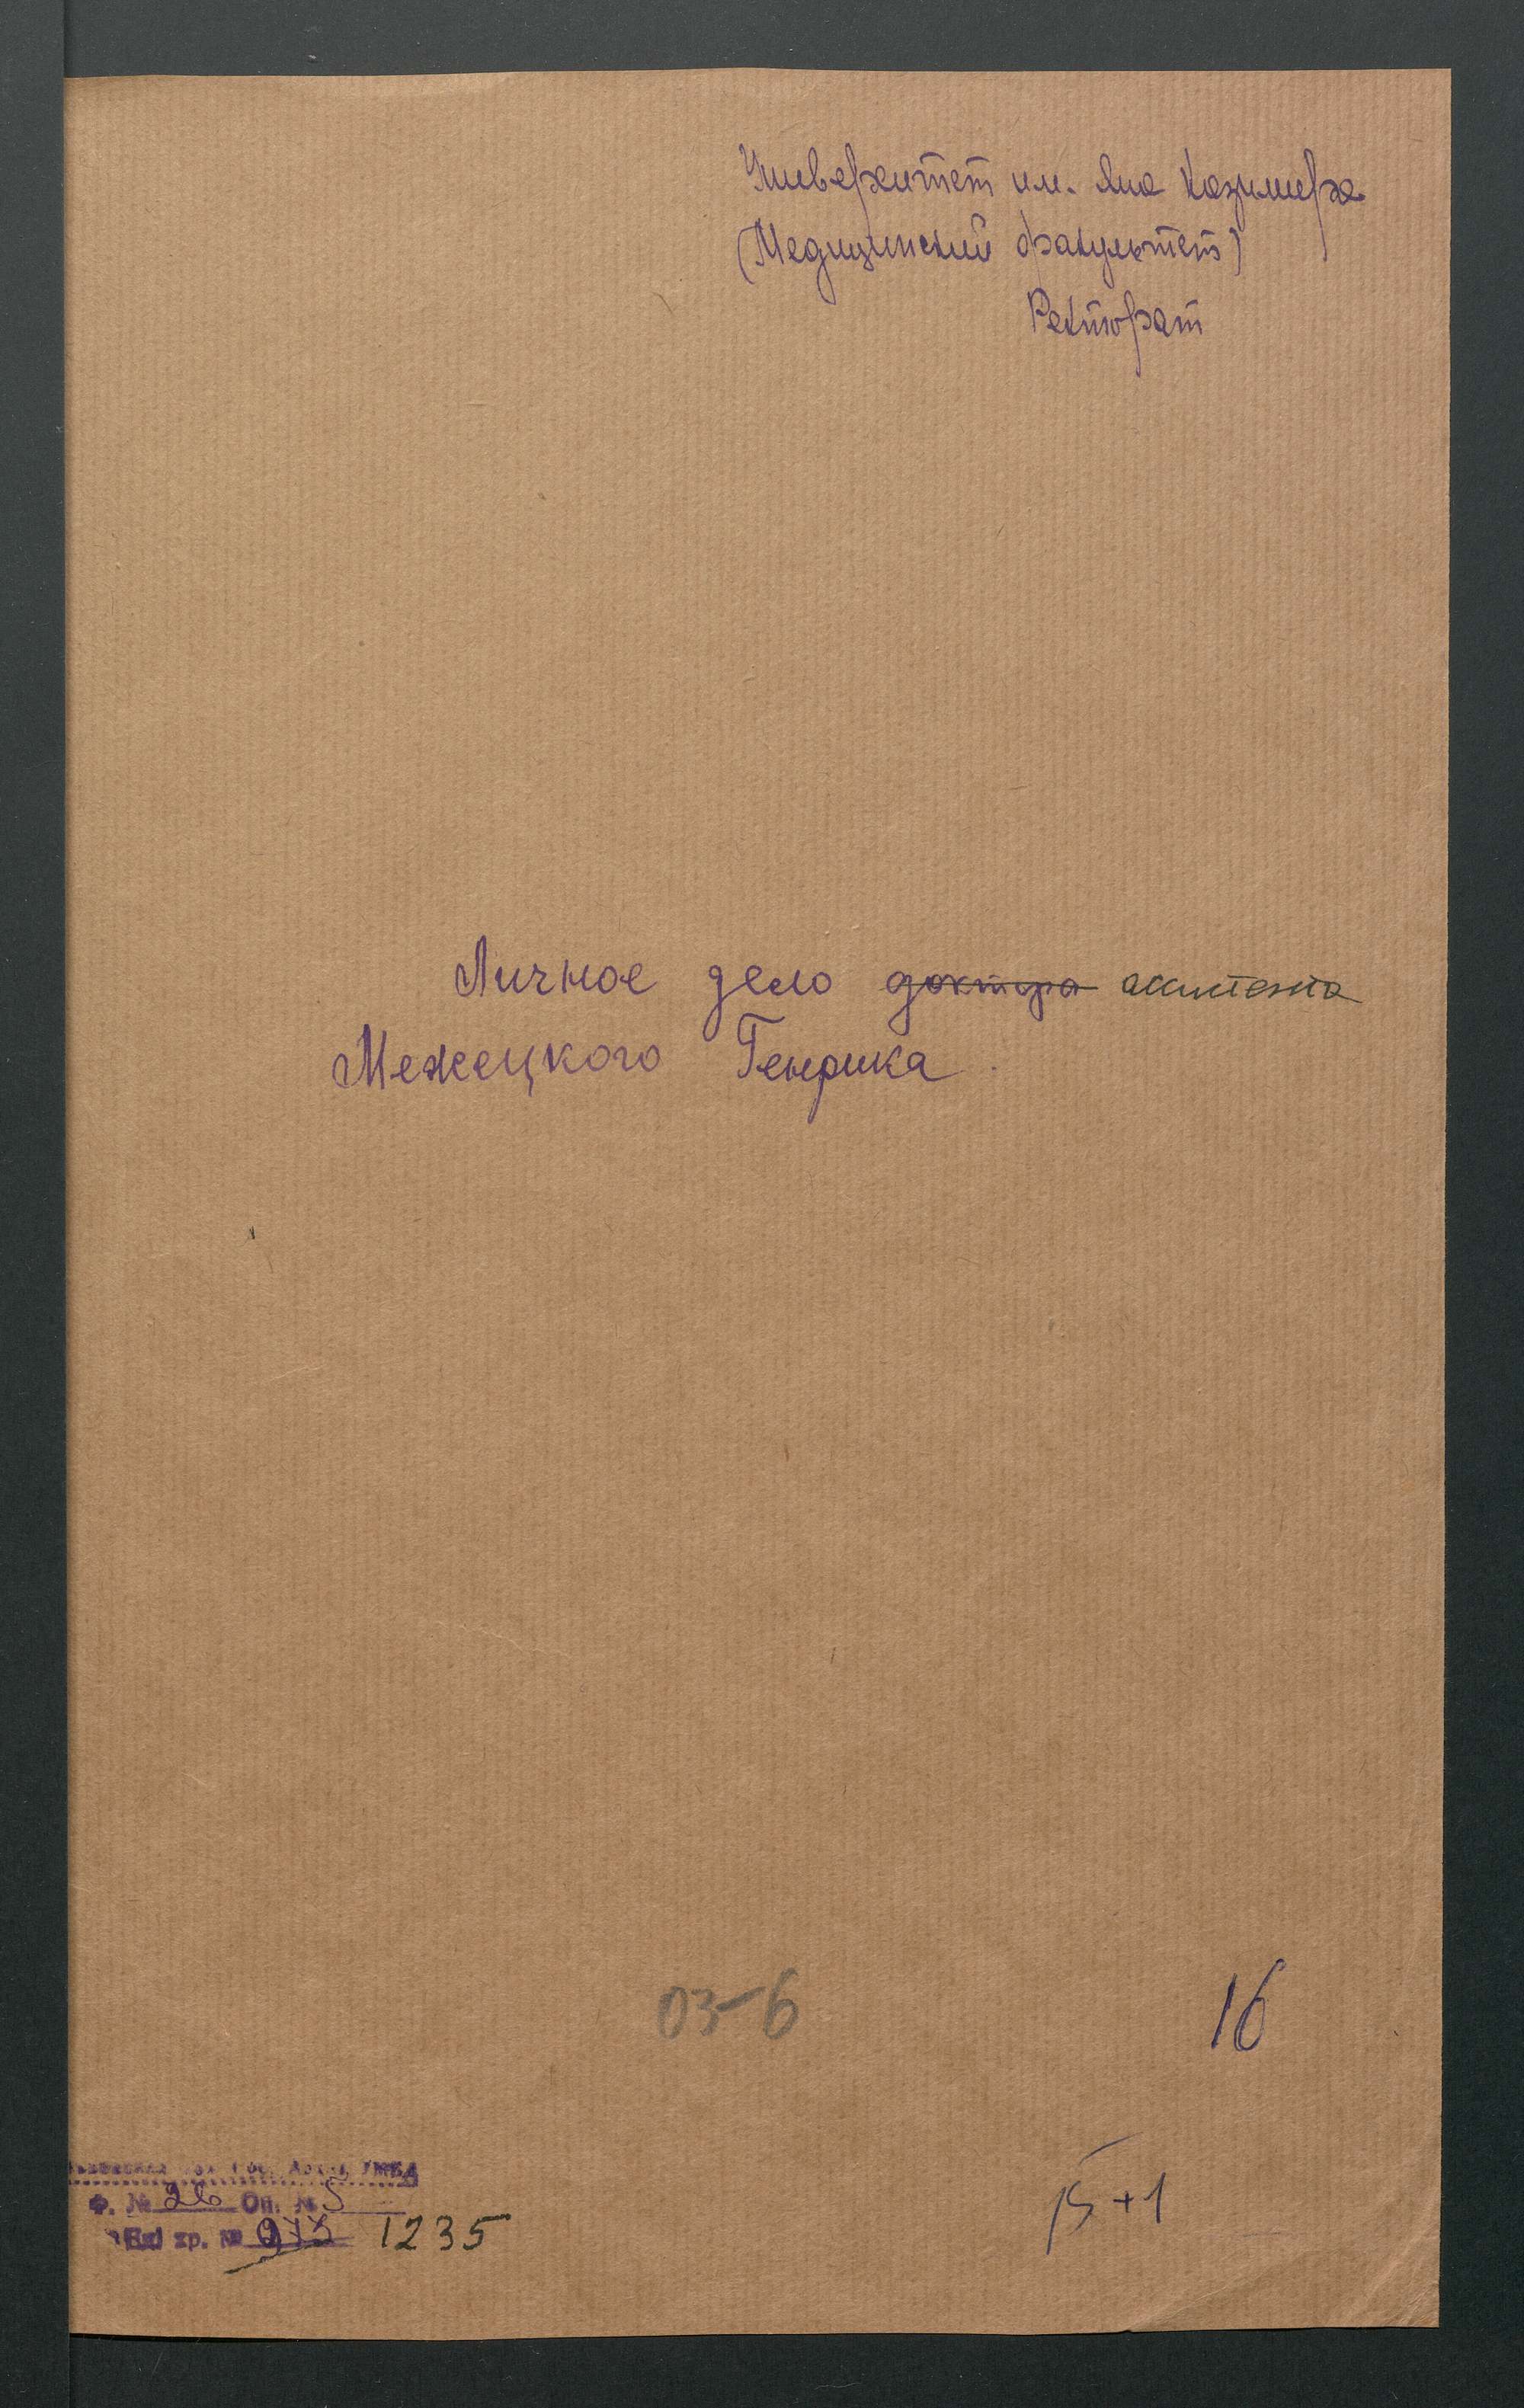 Университет им. Яна Казимира
(Медицинский факультет)
Ректорат
Личное дело доктора ассистента
Межецкого Генрика.
03-6
16
15+1
Гос. Архив УМВД
Ф. № 26 Оп. № 5
Ед. хр. № 975 1235